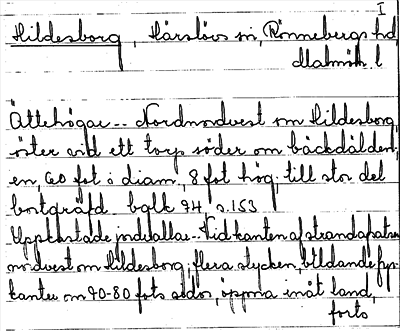 I
Hildesborg, Härslövs sn, Rönnebergs hd
Malmöh. l
Ättehögar.. Nordnordvest om Hildesborg
öster vid ett torp söder om bäckdälden
en, 60 fot i diam, 8 fot hög, till stor del
bortgräfd. balk 94, s. 153
Uppkastade jordvallar.. Vid kanten af strandplatån
nordvest om Hildesborg, flera stycken, bildande fyr-
kanter om 40-80 fots sidor, öppna inåt land,
forts